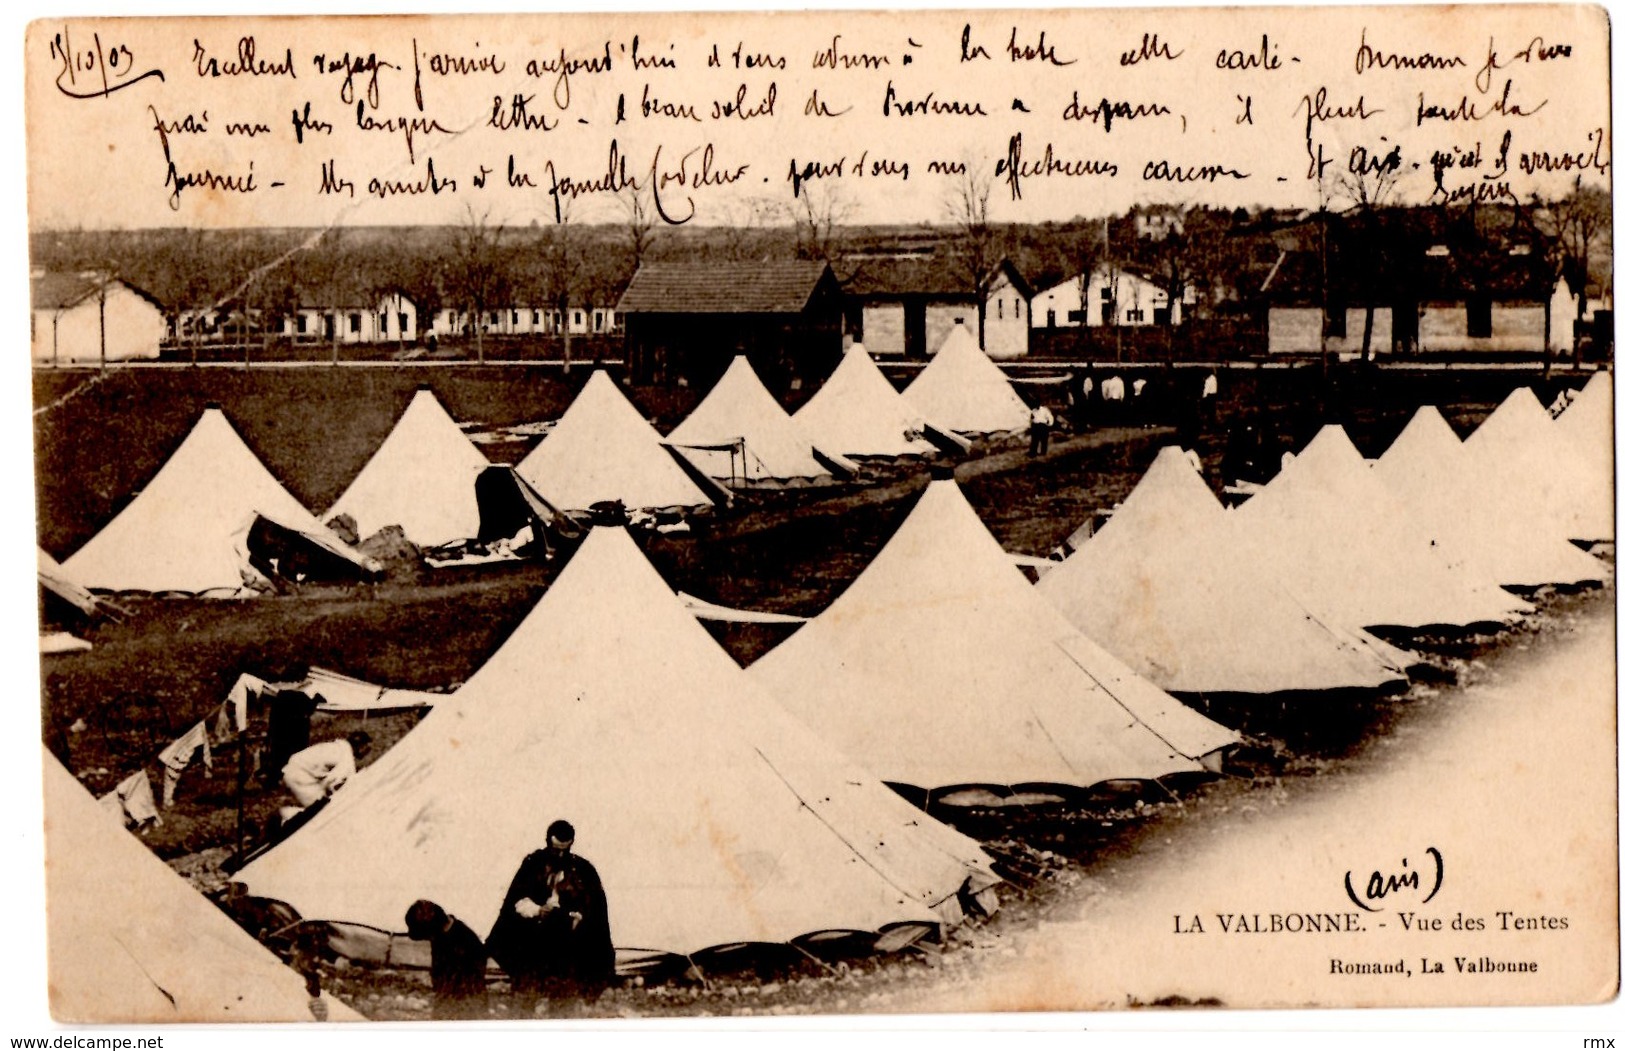 15/10/03 Excellent voyage. J'arrive aujourd'hui et vous adresse à la hate cette carte - Demain je vous
ferai une plus longue lettre - le beau soleil de Provence a disparu, il pleut toute la
journée - Mes amitiés à la famille. pour vous mes affectueuses caresses - Et Aix. qu'est il arrivé?
(Ain)
LA VALBONNE. - Vue des Tentes
Romand, La Valbonne
www.delcampe.net
rmx